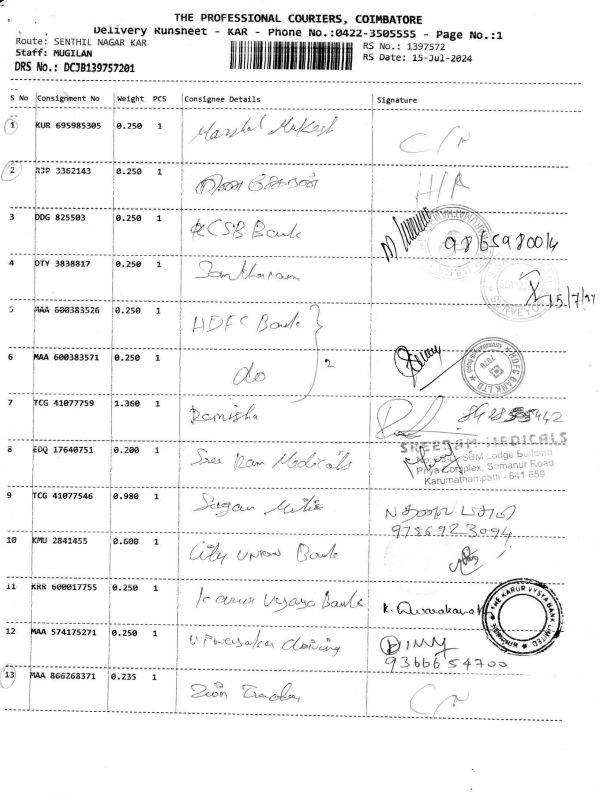 THE PROFESSIONAL COURIERS, COIMBATORE
Delivery Runsheet - KAR - Phone No.:0422-3505555 - Page No.:1
Route: SENTHIL NAGAR KAR
RS No.: 1397572
Staff: MUGILAN
RS Date: 15-Jul-2024
DRS No.: DCJB139757201
S No Consignment No Weight PCS Consignee Details Signature
1 KUR 695985305 0.250 1 Marshal Mukesh C/N
2 RJP 3362143 0.250 1 H/R
3 DDG 825503 0.250 1 KCSB Bank 9865980014
4 DTY 3838817 0.250 1 Santharam 15/7/24
SURVEYO
5 MAA 600383526 0.250 1 HDFC Bank
6 MAA 600383571 0.250 1 do 2
HDFC BANK LTD
7 TCG 41077759 1.360 1 Ramisha
8 EDQ 17640751 0.200 1 Sree Ram Medicals
SREERAM MEDICALS
SBM Lodge Building
Priya Complex, Somanur Road
Karumathampatti - 641 659.
9 TCG 41077546 0.980 1 Sagan
9786923094
10 KMU 2841455 0.600 1 City UNION Bank
11 KRR 600017755 0.250 1 Karur Vysya Bank K. Dwarakanath
THE KARUR VYSYA BANK LIMITED
12 MAA 574175271 0.250 1
9366654700
13 MAA 866268371 0.235 1 Zion C/N